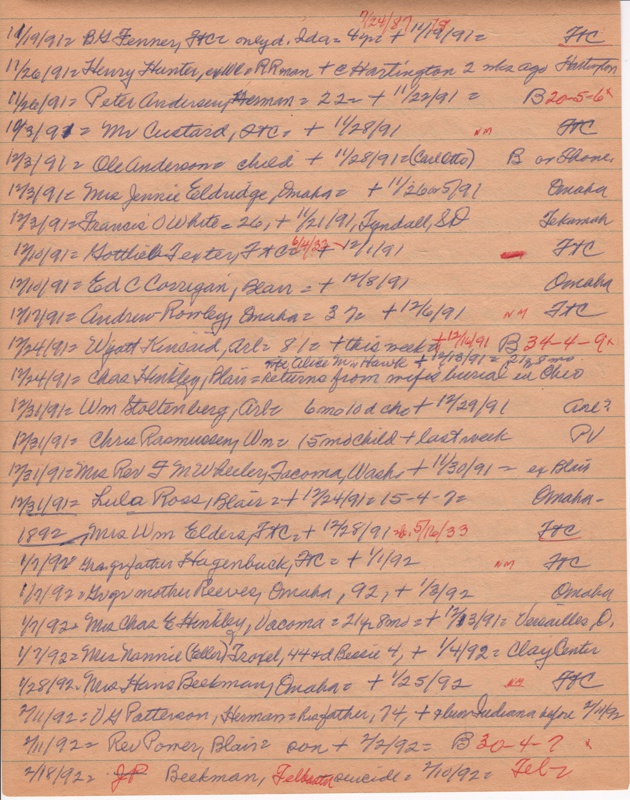 7/24/87 79
11/19/91= B G Fenner, FtC= only d. Ida= 4yr + 11/19/91= FtC
11/26/91= Henry Hunter, RRman + c Hartington 2 wks ago Hartington
11/26/91= Peter Andersen, Herman= 22= + 11/22/91= B 20-5-6x
10/3/91= Mr Custard, FtC= + 11/28/91 NM FtC
12/3/91= Ole Anderson= child + 11/28/91=(Carl Otto) B or Thone.
12/3/91= Mrs Jennie Eldridge, Omaha= + 11/26 or 5/91 Omaha
12/3/91= Francis O White= 26, + 11/21/91, Tyndall, SD Tekamah
12/10/91= Gottlieb Texter, FtC= 6/4/33 + 12/1/91 FtC
12/10/91= Ed C Corrigan, Blair= + 12/8/91 Omaha
12/17/91= Andrew Rowley, Omaha= 37= + 12/6/91 NM FtC
12/24/91= Wyatt Kincaid, Arl= 81= + this week + 12/16/91 B 34-4-9x
Alice M= Hawk + 12/13/91= 21y 8 mo
12/24/91= Chas Hinkley, Blair= returns from wife's burial in Ohio
12/31/91= Wm Stoltenberg, Arl= 6mo 10d ch + 12/29/91 Arl?
12/31/91= Chris Rasmussen, Wn= 15 mo child + last week PV
12/31/91= Mrs Rev F M Wheeler, Tacoma, Wash. + 11/30/91 - ex Blair
12/31/91= Lula Ross, Blair= + 12/24/91= 15-4-7= Omaha-
1892 Mrs Wm Elders, FtC= + 12/28/91 5/16/33 FtC
1/7/92 Grandfather Hagenbuck, FtC= + 1/1/92 NM FtC
1/7/92= mother Reeves, Omaha, 92, + 1/3/92 Omaha
1/7/92= Mrs Chas E Hinkley, Vacoma= 21yr 8mo= + 12/13/91= Versailles, O.
1/7/92= Mrs Nannie (Eller) Troxel, 44 & d Bessie 4, + 1/4/92= Clay Center
1/28/92. Mrs Hans Beekman, Omaha= + 1/25/92 NM FtC
2/11/92= V G Patterson, Herman= his father, 74, + Indiana before 2/11/92
2/11/92= Rev Power, Blair= son + 2/2/92= B 30-4-7 x
2/18/92= JP Beekman, suicide= 2/10/92= Feb-